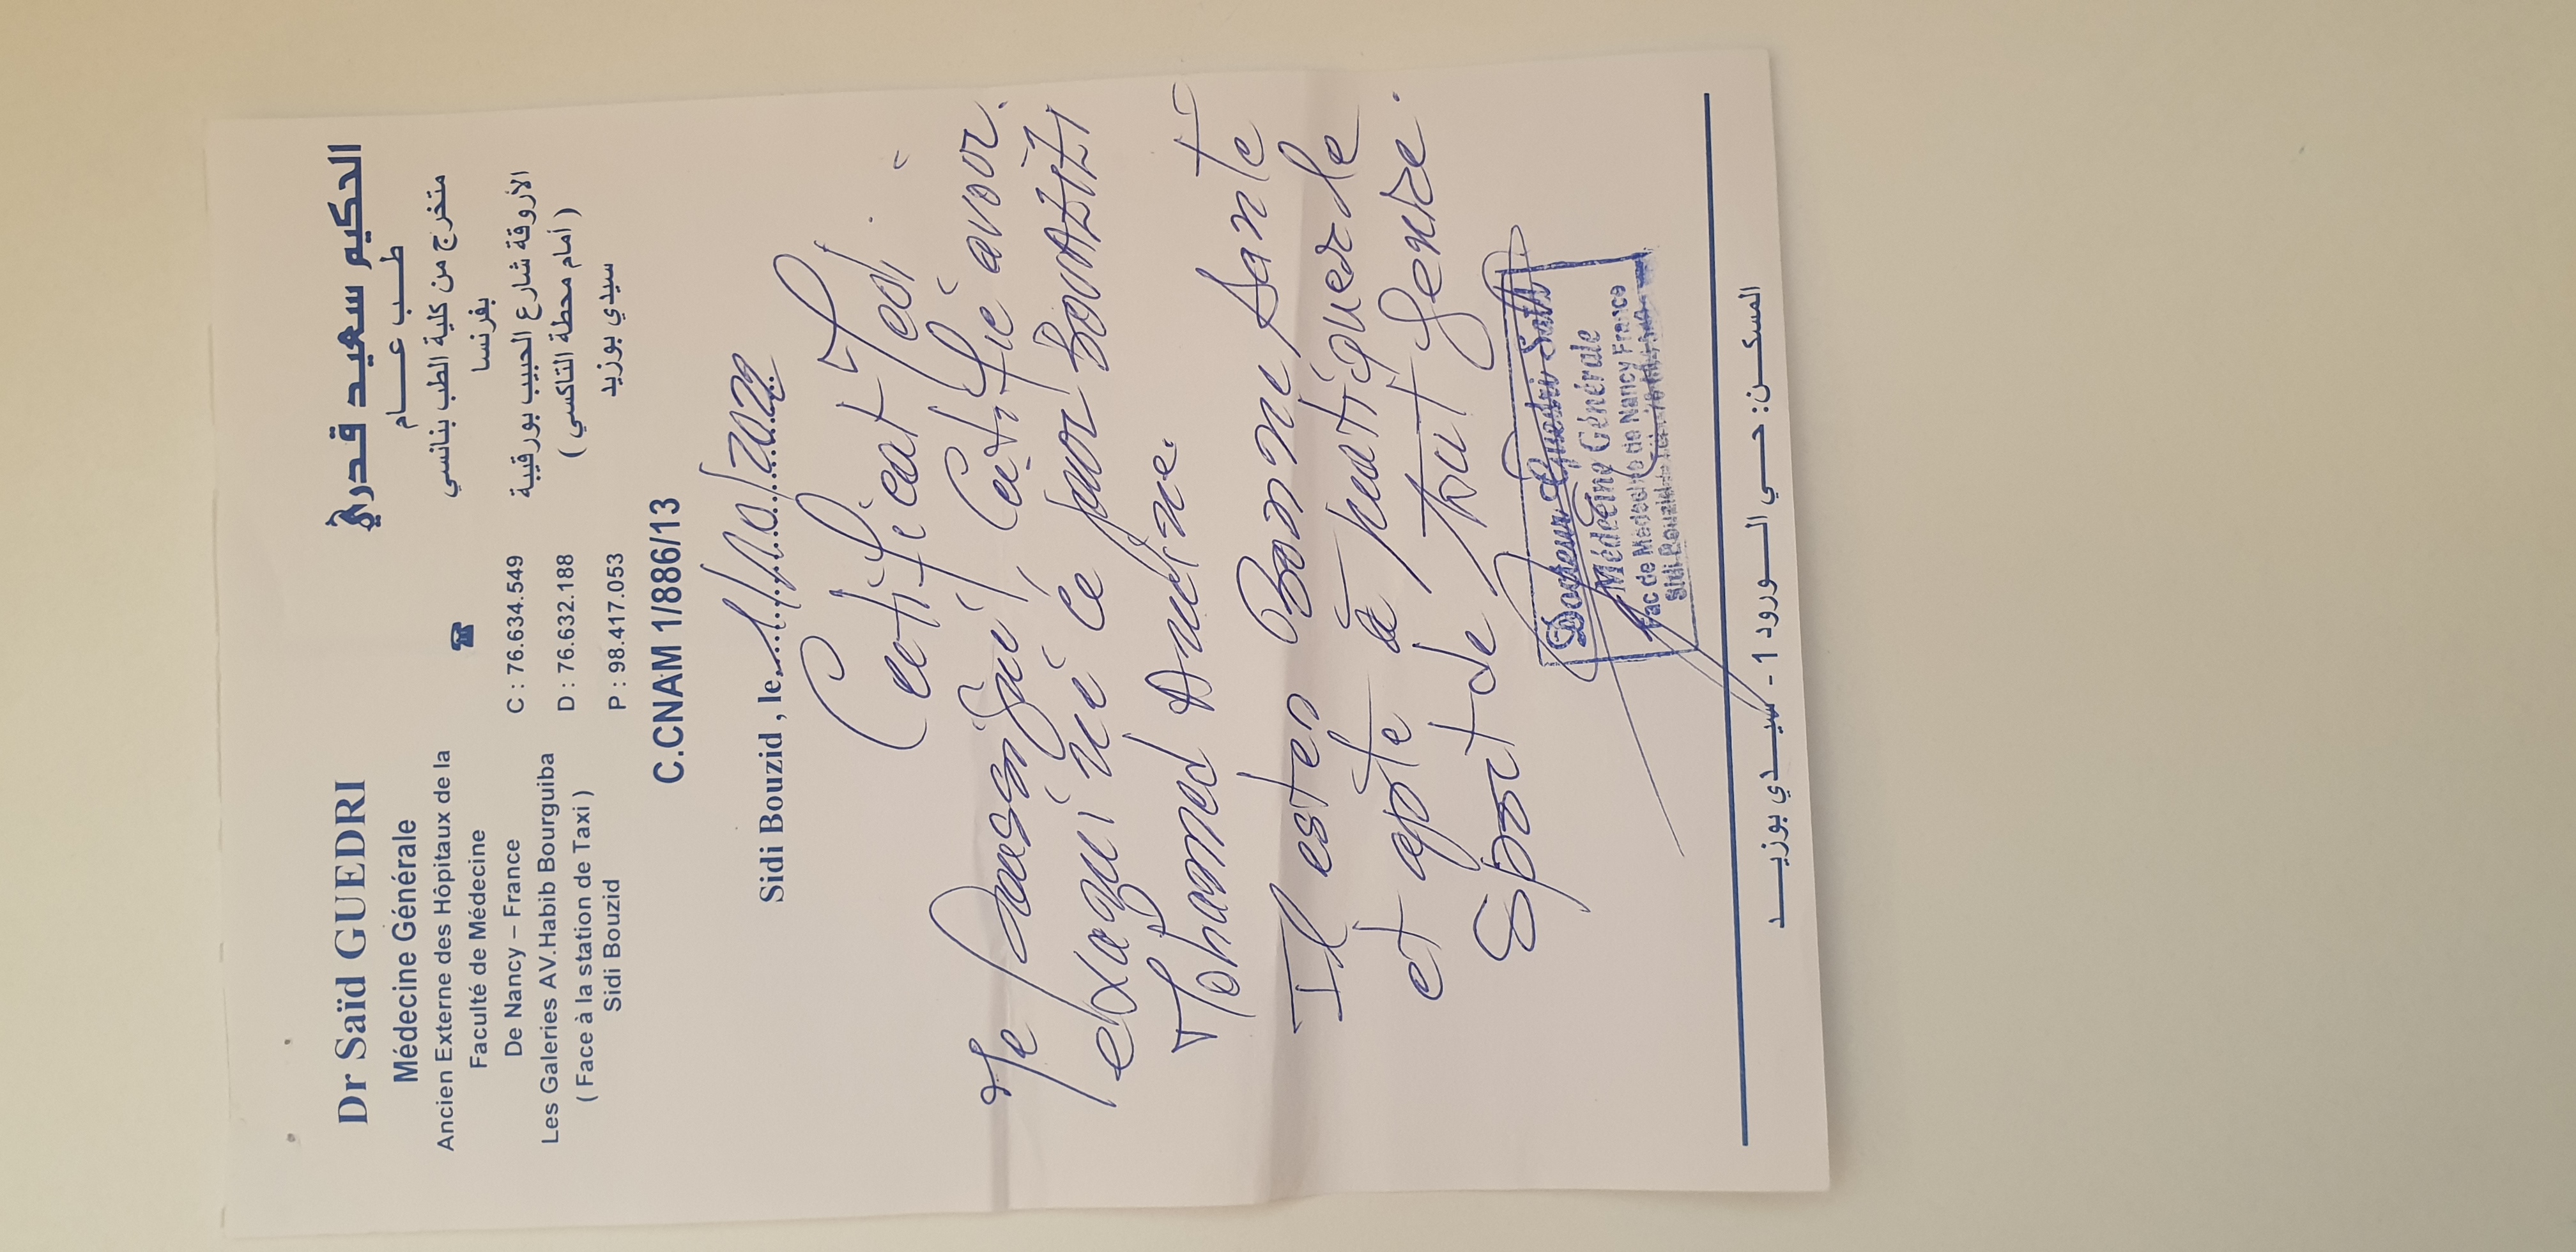 Dr Saïd GUEDRI
Médecine Générale
Ancien Externe des Hôpitaux de la
Faculté de Médecine
De Nancy – France
Les Galeries AV.Habib Bourguiba
( Face à la station de Taxi )
Sidi Bouzid
C : 76.634.549
D : 76.632.188
P : 98.417.053
الحكيم سعيد قدري
طب عام
متخرج من كلية الطب بنانسي
بفرنسا
الأروقة شارع الحبيب بورقيبة
( أمام محطة التاكسي )
سيدي بوزيد
C.CNAM 1/886/13
Sidi Bouzid , le 1/10/2022
Certificat Med.
Je soussigné Certifie avoir
examiné ce jour BOUAZIZI
Mohamed
Il est en Bonne Santé
et apte à pratiquer le
Sport de tout genre.
Docteur Guedri Saïd
Médecine Générale
Fac de Médecine de Nancy France
Sidi Bouzid
المسكن: حي الورود 1 - سيدي بوزيد